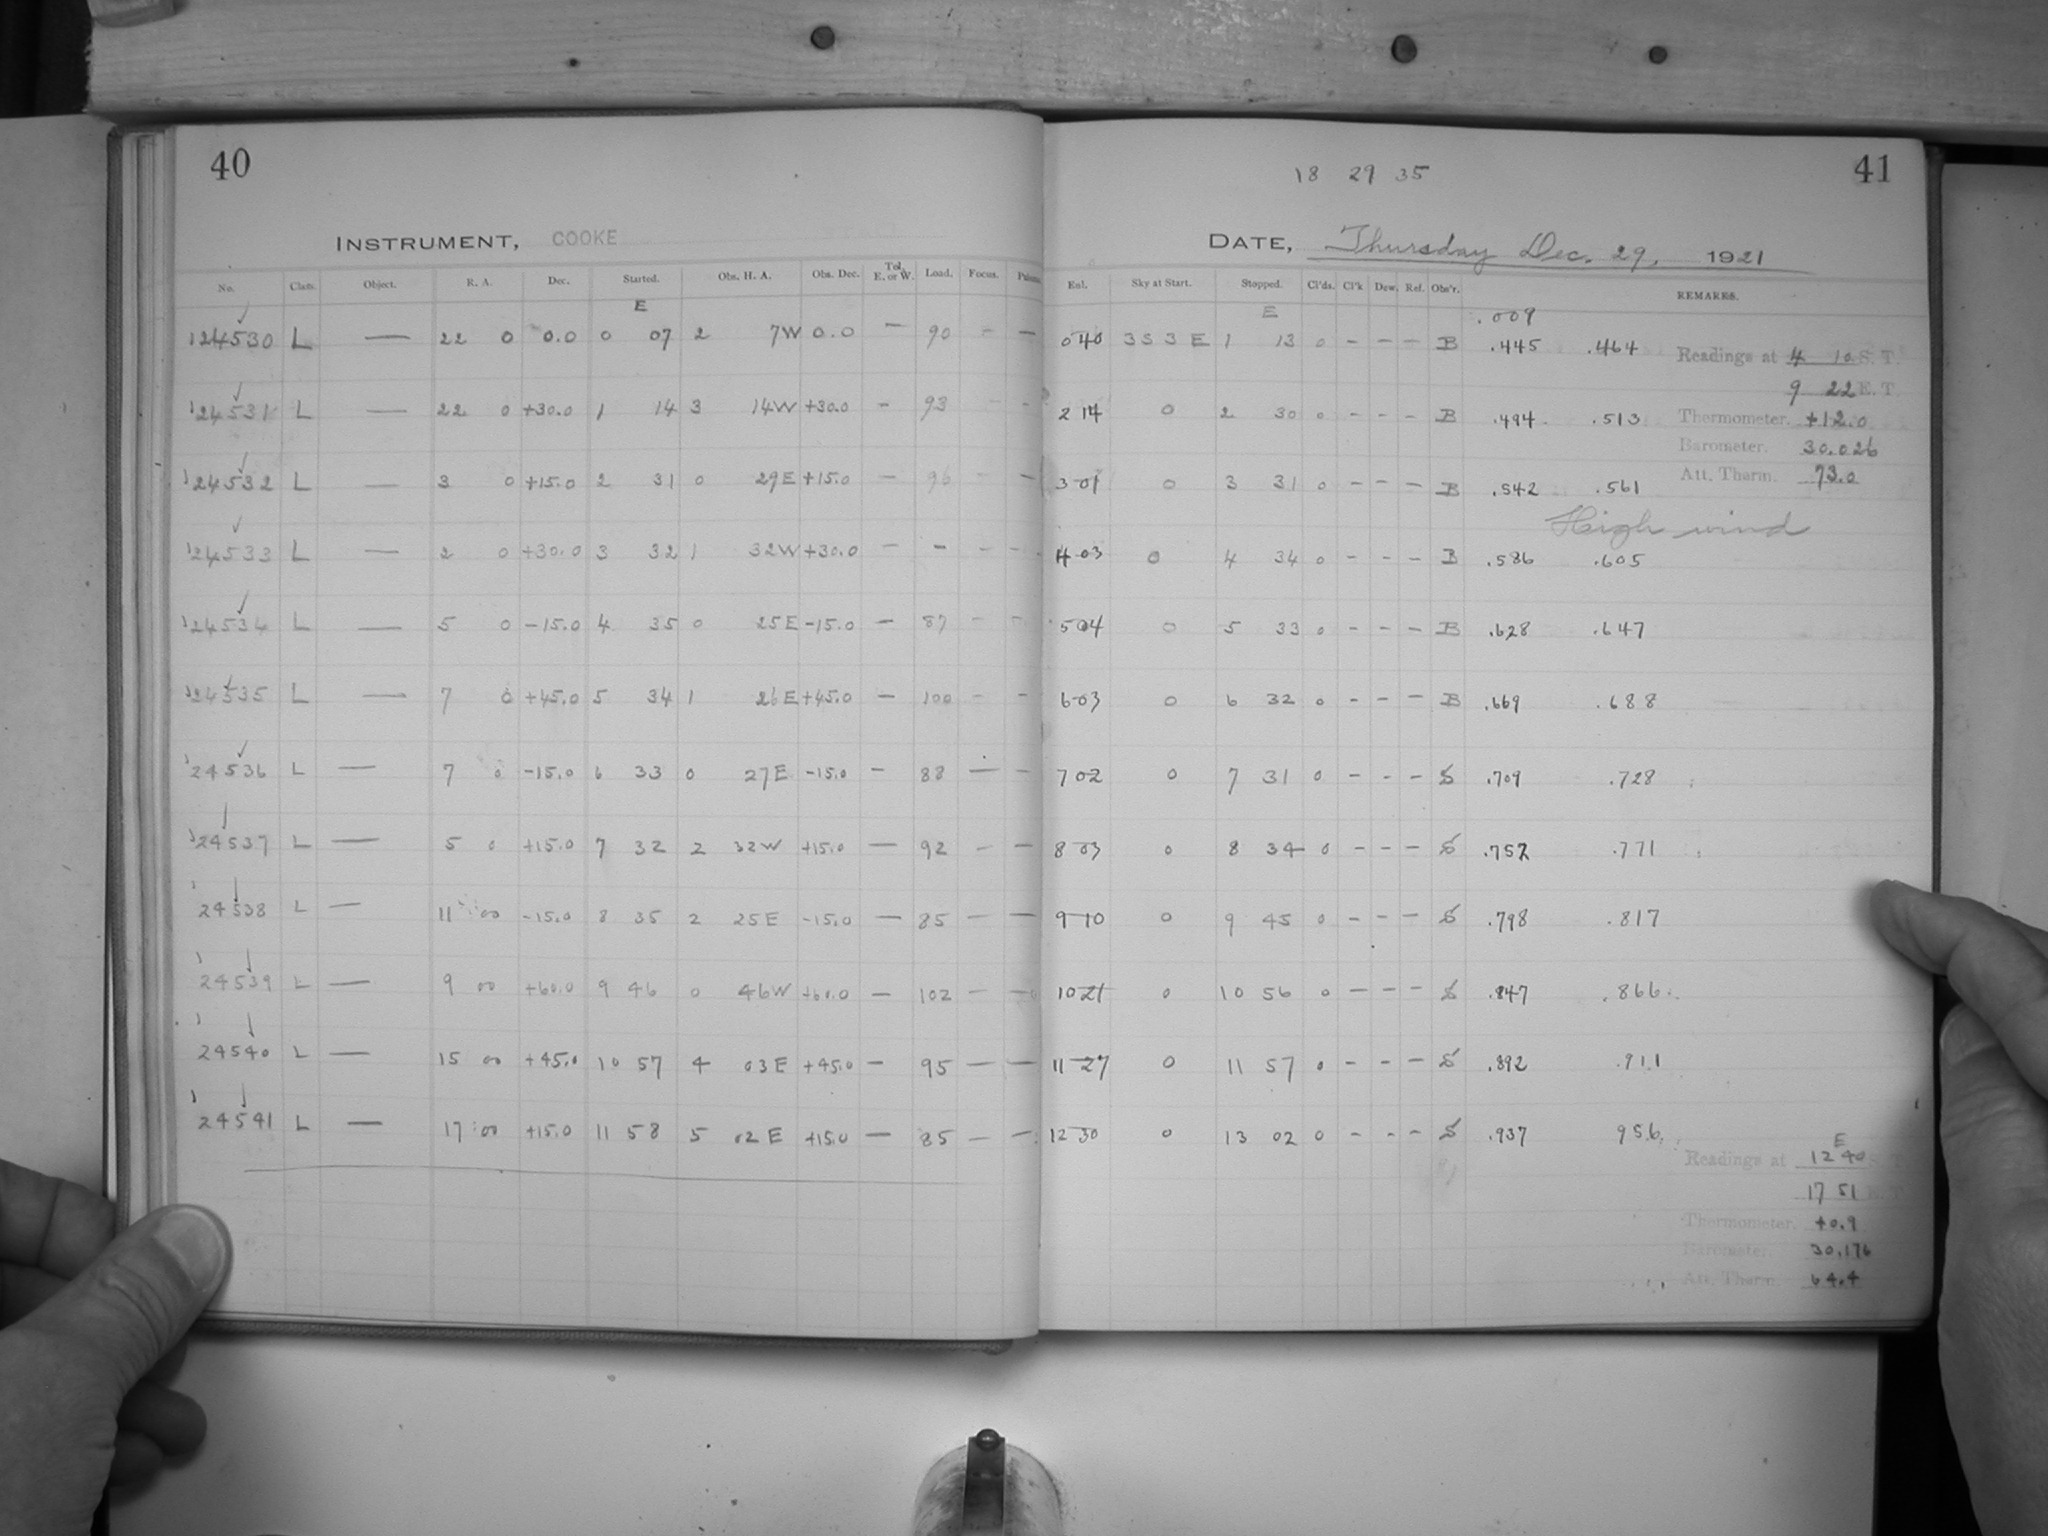 40
INSTRUMENT, COOKE
No. Class. Object. R. A. Dec. Started. Obs. H. A. Obs. Dec. Tel. E. or W. Load. Focus.
E
124530 L — 22 0 0.0 0 07 2 7W 0.0 — 90 - —
124531 L — 22 0 +30.0 1 14 3 14W +30.0 - 93 - -
124532 L — 3 0 +15.0 2 31 0 29E +15.0 — 96 - —
124533 L — 2 0 +30.0 3 32 1 32W +30.0 — - - -
124534 L — 5 0 -15.0 4 35 0 25E -15.0 — 87 - -
124535 L — 7 0 +45.0 5 34 1 26E +45.0 — 100 - -
124536 L — 7 0 -15.0 6 33 0 27E -15.0 — 88 — —
124537 L — 5 0 +15.0 7 32 2 32W +15.0 — 92 - —
124538 L — 11 00 -15.0 8 35 2 25E -15.0 — 85 — —
124539 L — 9 00 +60.0 9 46 0 46W +60.0 — 102 — —
124540 L — 15 00 +45.0 10 57 4 03E +45.0 — 95 — —
124541 L — 17 00 +15.0 11 58 5 02E +15.0 — 85 — —
41
18 29 35
DATE, Thursday Dec. 29, 1921
Ext. Sky at Start. Stopped. Cl'ds. Cl'k Dew. Ref. Obs'r. REMARKS.
E .009
0 40 353 E 1 13 0 - - - B .445 .464
2 14 0 2 30 0 - - - B .494 .513
3 01 0 3 31 0 - - - B .542 .561
4 03 0 4 34 0 - - - B .586 .605
5 04 0 5 33 0 - - - B .628 .647
6 03 0 6 32 0 - - - B .669 .688
7 02 0 7 31 0 - - - S .709 .728
8 03 0 8 34 0 - - - S .752 .771
9 10 0 9 45 0 - - - S .798 .817
10 21 0 10 56 0 - - - S .847 .866
11 27 0 11 57 0 - - - S .892 .911
12 30 0 13 02 0 - - - S .937 956
Readings at 4 10 S. T.
9 22 E. T.
Thermometer. +12.0
Barometer. 30.026
Att. Therm. 73.0
High wind
E
Readings at 12 40 S. T.
17 51 E. T.
Thermometer. +0.9
Barometer. 30.176
Att. Therm. 64.4